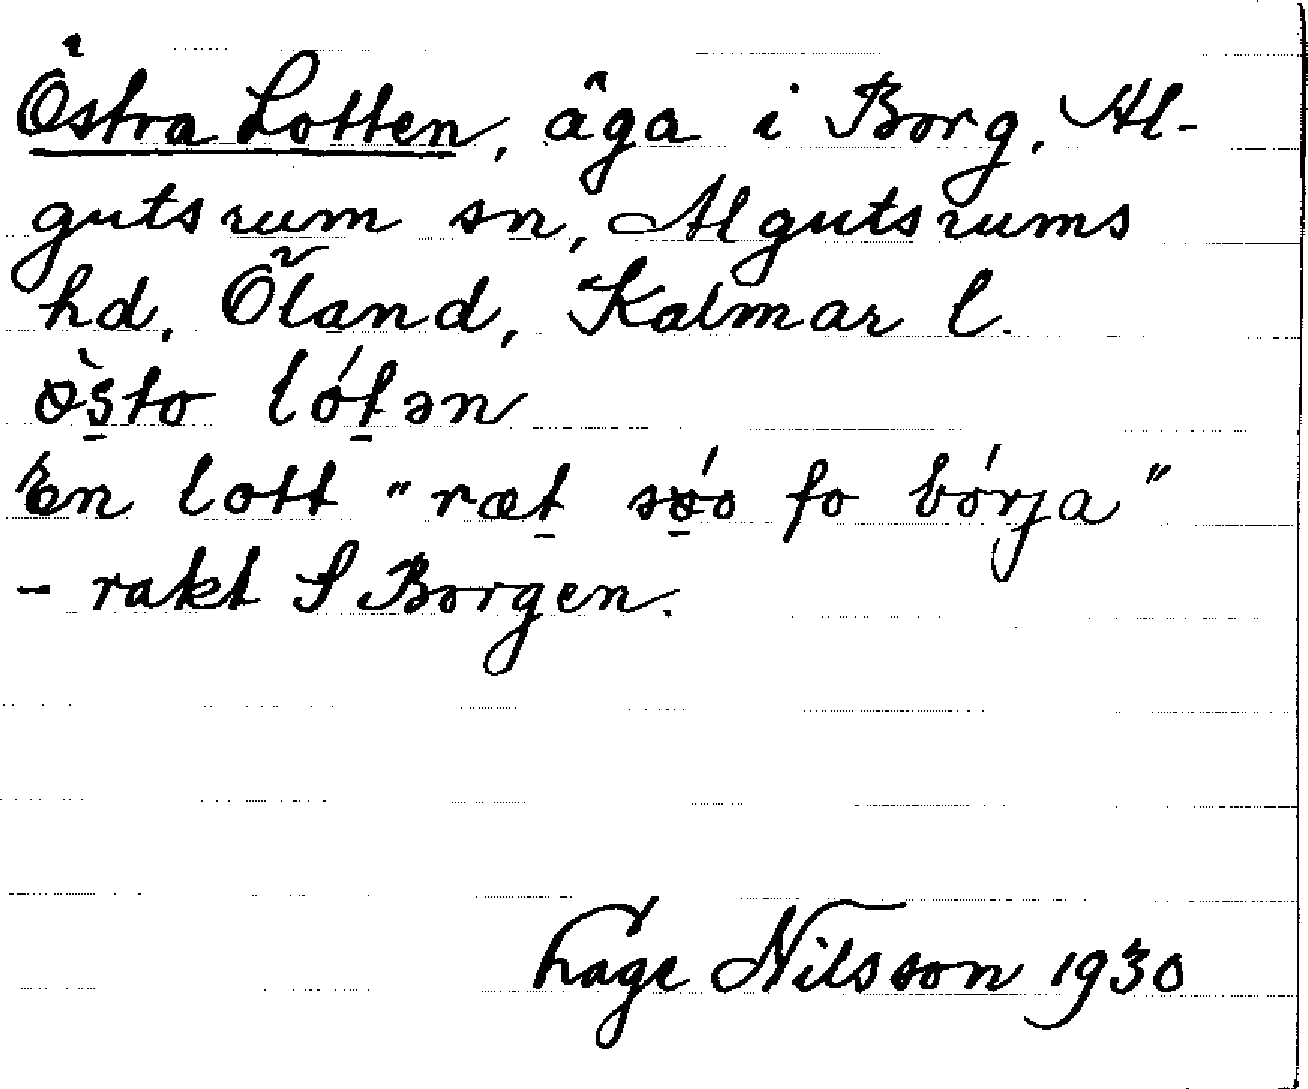 Östra Lotten, äga i Borg, Al-
gutsrum sn, Algutsrums
hd, Öland, Kalmar l.
ö̀s̠to lót̠ən
En lott "ræt̠ sǿ̠o fo bórja"
- rakt S Borgen.
Hage Nilsson 1930